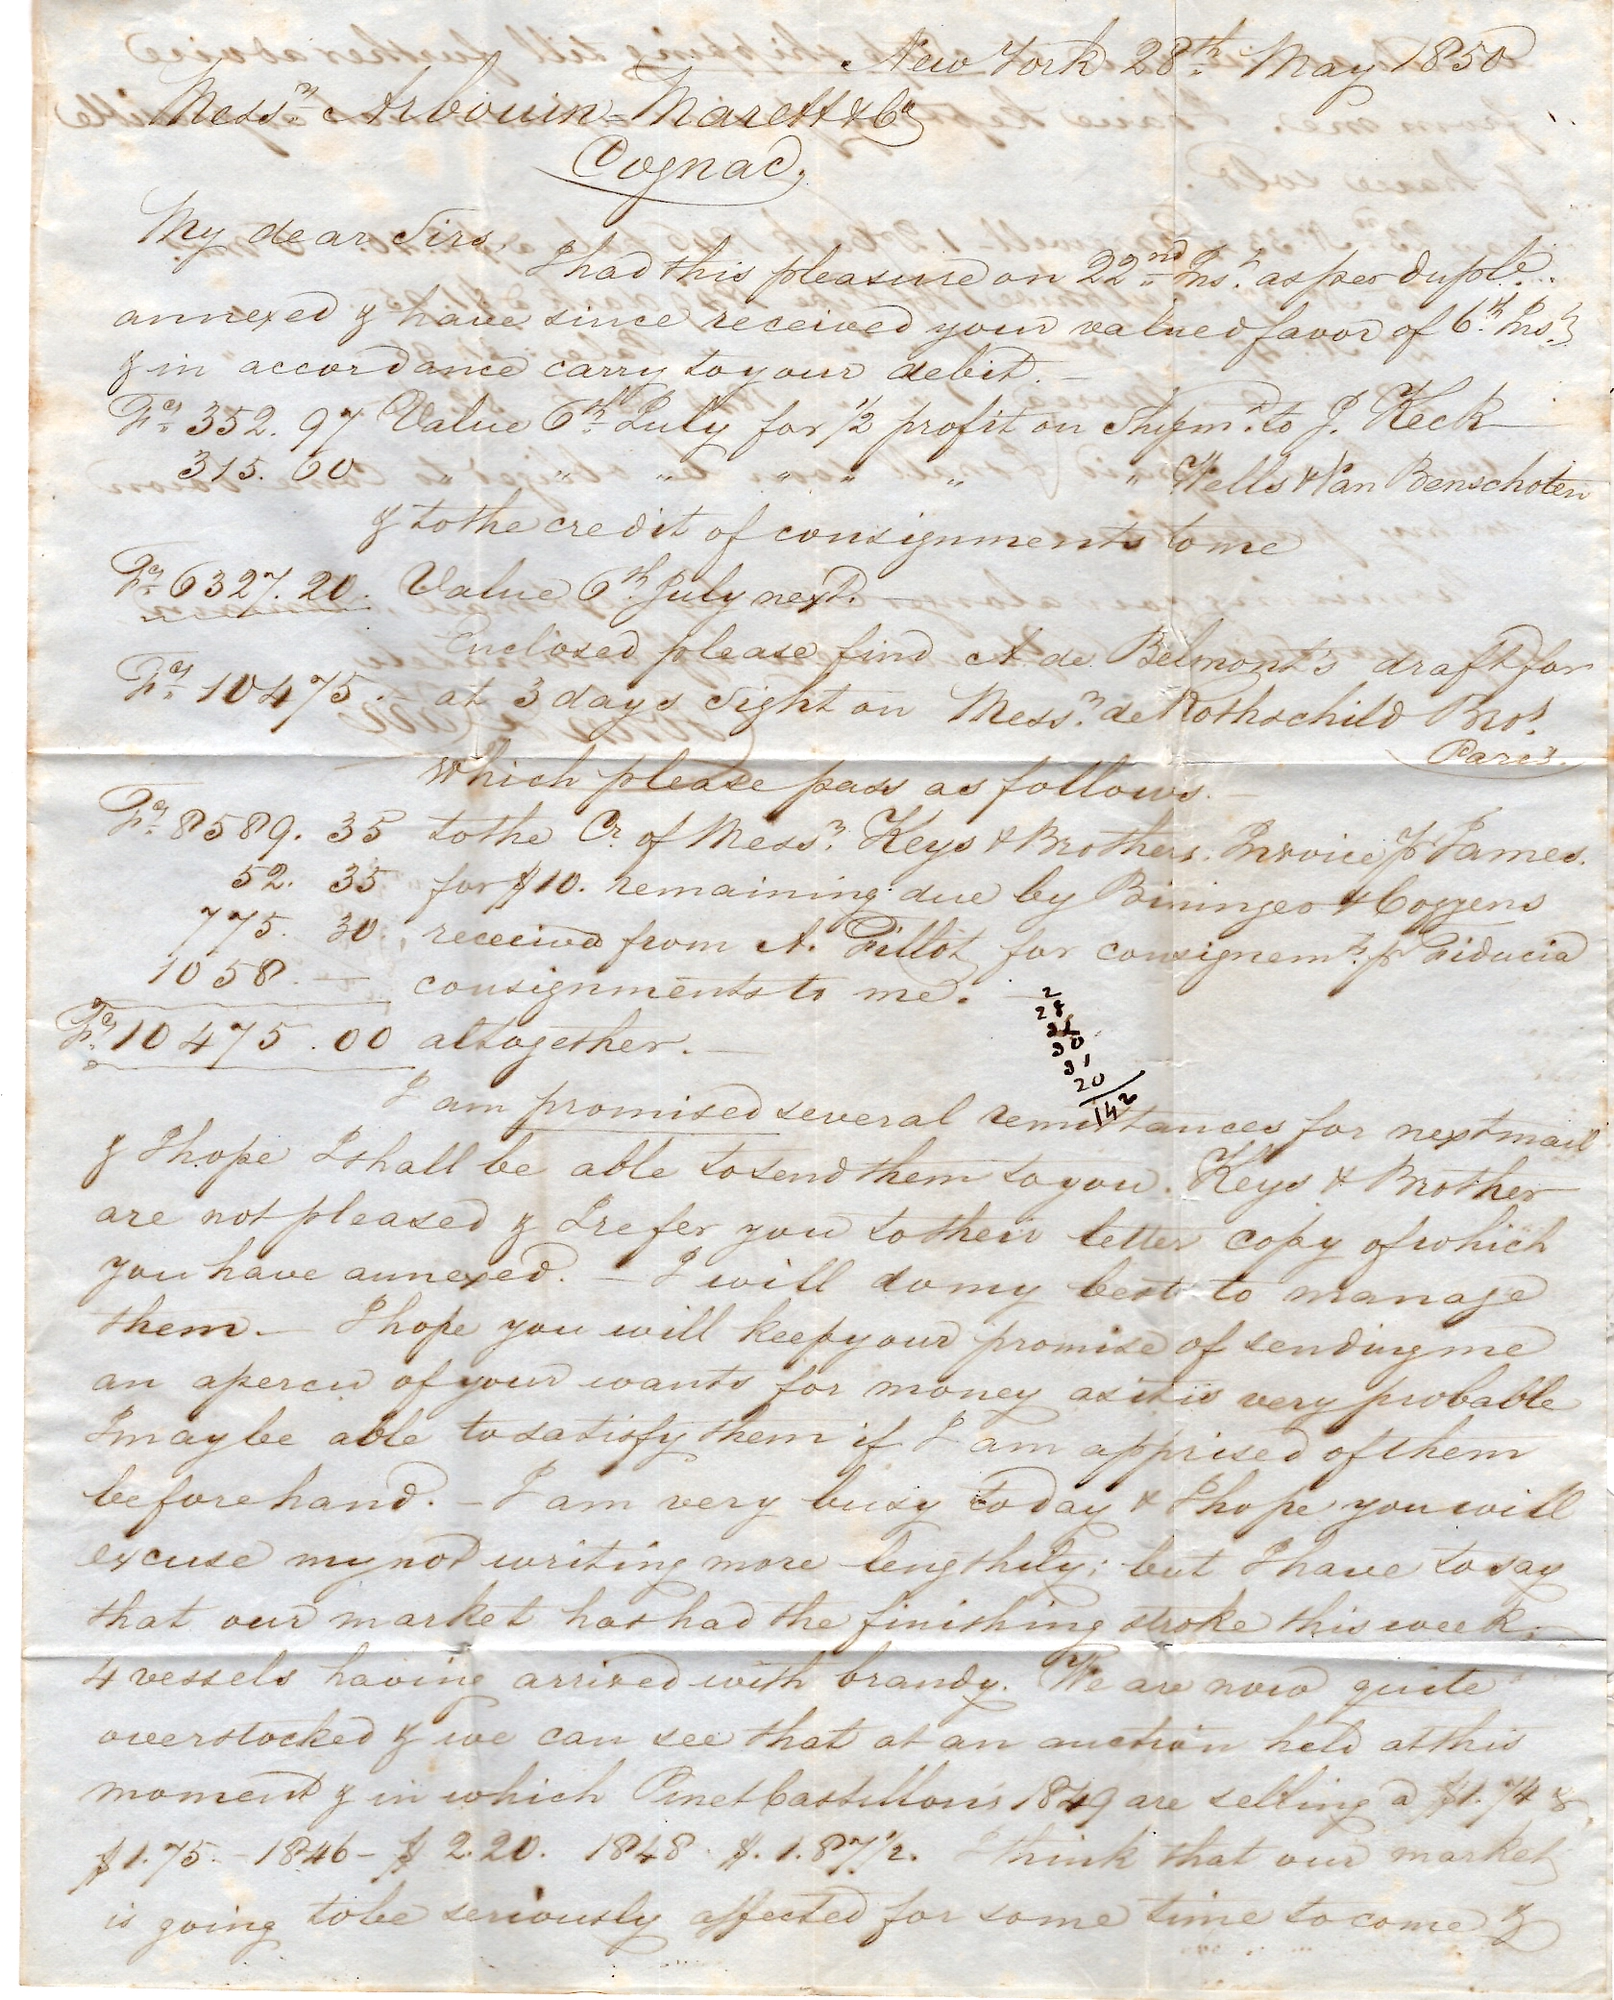 New York 28th May 1850
Messrs Arbouin = Marett & Co
Cognac.
My dear Sirs,
I had this pleasure on 22nd Inst as per duple.
annexed & have since received your valued favor of 6th Inst
& in accordance carry to your debit. —
Fcs 352. 97 Value 6th July for 1/2 profit on Shipmt to J. Keck
315. 60 " " " " " " " Wells & Van Benschoten
& to the credit of consignments to me
Fcs 6327. 20. Value 6th July next. —
Enclosed please find A. de Belmont's draft for
Fcs 10475. — at 3 days sight on Messrs de Rothschild Bros.
Paris.
Which please pass as follows. —
Fcs 8589. 35 to the Cr. of Messrs Keys & Brothers. Invoice pr James.
52. 35 for $10. remaining due by Bininger & Cozzens
775. 30, received from A. Fillot for consignemt. pr Fiducia
1058. — consignments to me. —
Fcs 10475.00 altogether. —
2
28
31
30
31
20
142
I am promised several remittances for next mail
& I hope I shall be able to send them to you. Keys & Brother
are not pleased & I refer you to their letter copy of which
you have annexed. — I will do my best to manage
them. — I hope you will keep your promise of sending me
an apercu of your wants for money as it is very probable
I may be able to satisfy them if I am apprised of them
beforehand. — I am very busy to day & I hope you will
excuse my not writing more lengthily; but I have to say
that our market has had the finishing stroke this week,
4 vessels having arrived with brandy. We are now quite
overstocked & we can see that at an auction held at this
moment & in which Pinet Castillon's 1849 are selling a $1.74 &
$1.75. — 1846 — $2.20. 1848 $.1.87 1/2. I think that our market
is going to be seriously affected for some time to come &